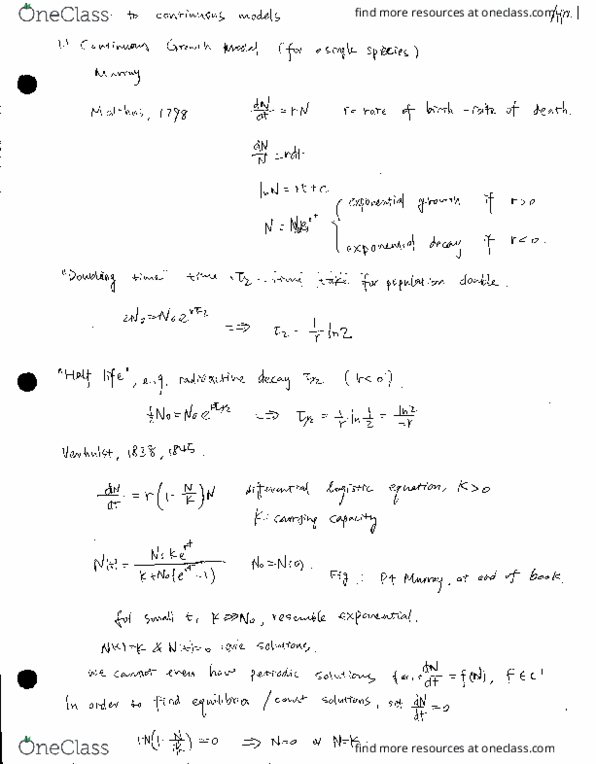 OneClass to continuous models
find more resources at oneclass.com
1.1 Continuous Growth Model (for a single species)
Murray
Malthus, 1798 dN/dt = rN r = rate of birth - rate of death.
dN/N = rdt
ln N = rt + c
exponential growth if r>0
N = N₀e^rt
exponential decay if r<0.
"Doubling time" time τ₂ time for population double.
2N₀ = N₀e^rτ₂ ⟹ τ₂ = 1/r ln2
"Half life", e.g. radioactive decay τ½ (r<0).
½N₀ = N₀e^rτ½ ⟹ τ½ = 1/r ln 1/2 = ln2/-r
Verhulst, 1838, 1845.
dN/dt = r(1-N/K)N differential logistic equation, K>0
K: carrying capacity
N(t) = N₀Ke^rt / K+N₀(e^rt-1) N₀=N(0)
Fig : P4 Murray, at end of book.
for small t, K≫N₀, resemble exponential.
N(t)=K & N(t)=0 solutions.
We cannot even have periodic solutions for dN/dt = f(N), f∈C¹
In order to find equilibria / const solutions, set dN/dt=0
rN(1-N/K)=0 ⟹ N=0 or N=K.
OneClass
find more resources at oneclass.com